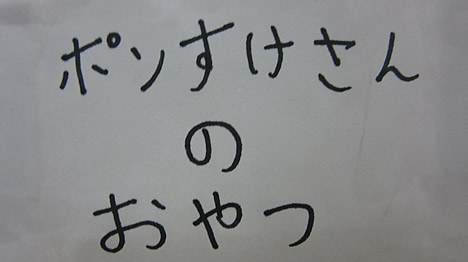 ポンすけさん
の
おやつ